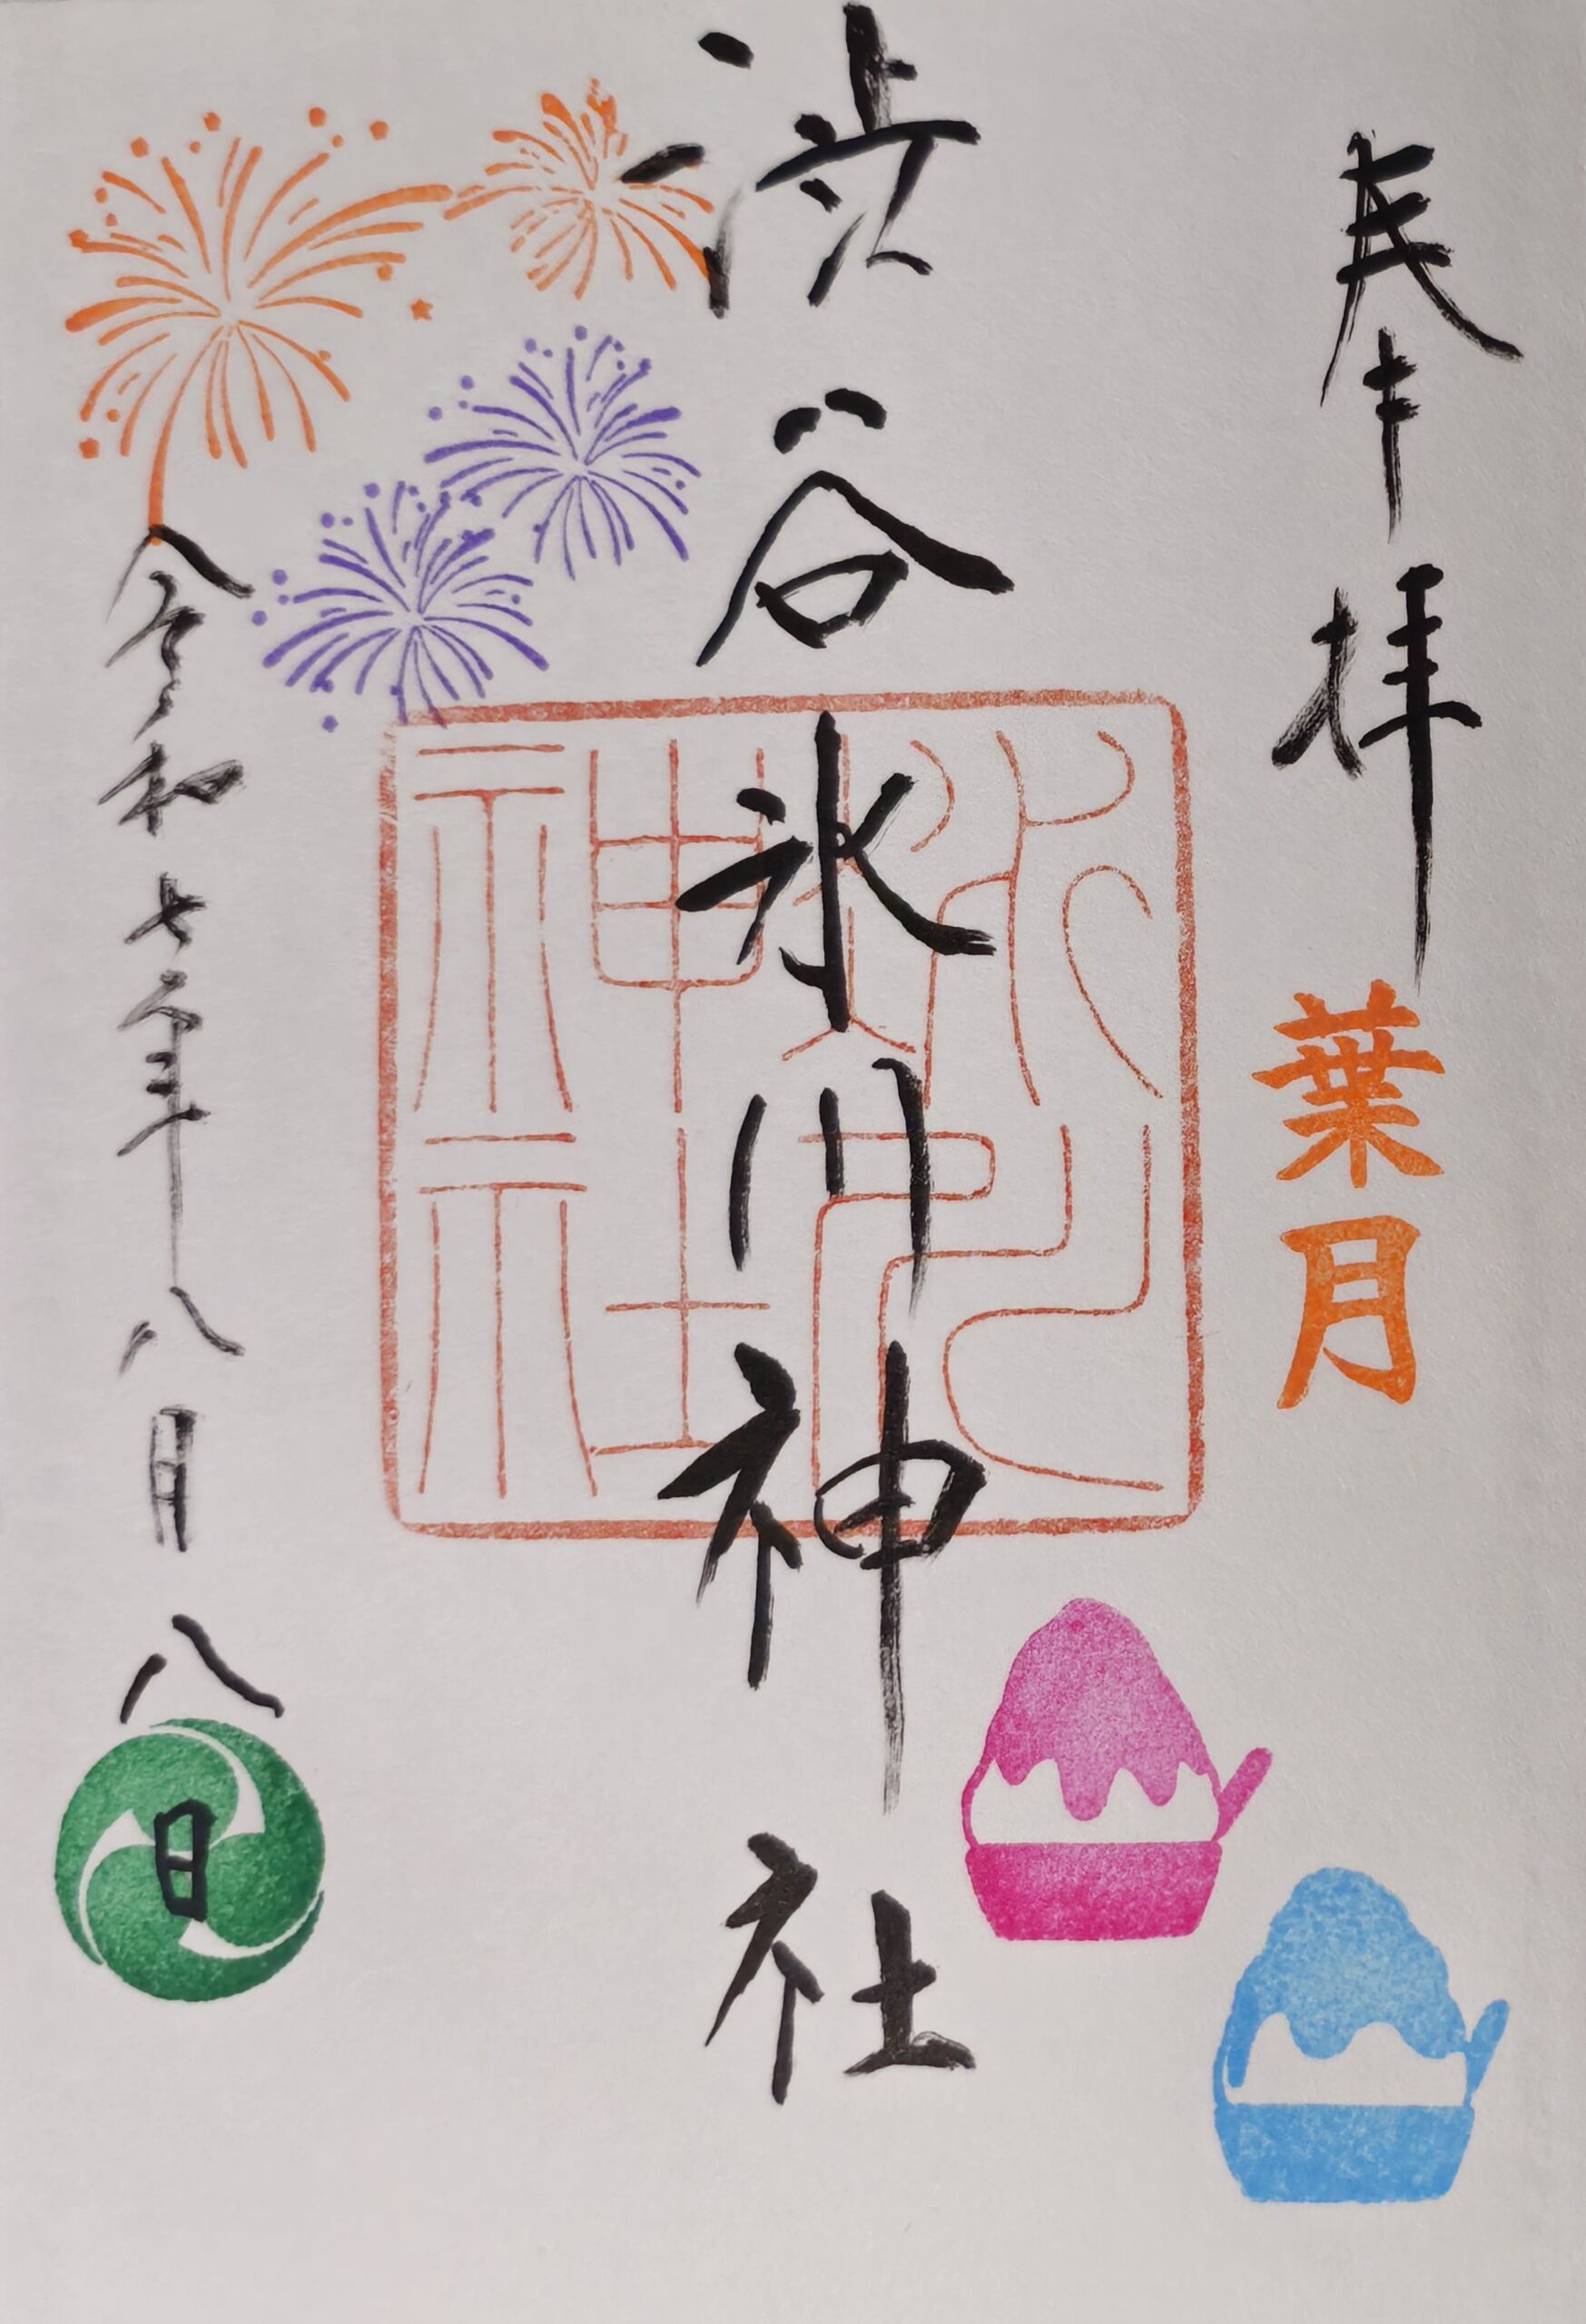 奉拝
葉月
渋谷氷川神社
氷川神社
令和七年八月八日